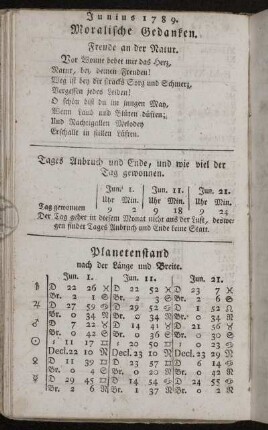 Junius 1789.
Moralische Gedanken.
Freude an der Natur.
Vor Wonne bebet mir das Herz,
Natur, bey deinen Freuden!
Weg ist bey dir Sorg und Schmerz,
Vergessen jedes Leiden!
O schön bist du im jungen May,
Wenn Land und Blüten düften;
Und Nachtigallen Melodey
Erschallt in stillen Lüften.
Tages Anbruch und Ende, und wie viel der
Tag gewonnen.
Jun. 1. Jun. 11. Jun. 21.
Uhr Min. Uhr Min. Uhr Min.
Tag gewonnen 9 2 9 18 9 24
Der Tag gehet in diesem Monat nicht aus der Luft, deswe-
gen findet Tages Anbruch und Ende keine Statt.
Planetenstand
nach der Länge und Breite.
Jun. 1. Jun. 11. Jun. 21.
♄ D 22 26 ♓ D 22 52 ♓ D 23 7 ♓
Br. 2 1 S Br. 2 3 S Br. 2 6 S
♃ D 27 59 ♋ D 29 52 ♋ D 1 52 ♌
Br. 0 34 N Br. 0 34 N Br. 0 34 N
♂ D 7 22 ♉ D 14 41 ♉ D 21 56 ♉
Br. 0 42 S Br. 0 36 S Br. 0 30 S
Decl. 22 10 N Decl. 23 10 N Decl. 23 29 N
♀ D 11 39 ♊ D 23 57 ♊ D 6 14 ♋
Br. 0 23 Br. 0 3 Br. 0 20 N
☿ D 29 45 ♊ D 14 54 ♋ D 24 55 ♋
Br. 1 35 N Br. 1 37 N Br. 0 2